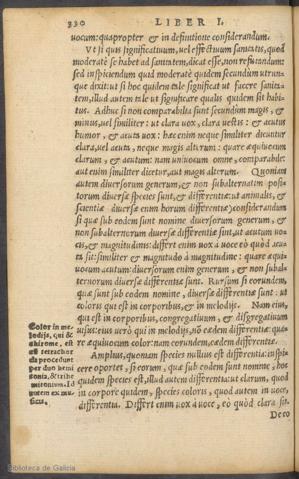 330 LIBER I.
uocum: quapropter & in definitione considerandum.
Vt si quis significatiuum, uel effectiuum sanitatis, quod
moderatè se habet ad sanitatem, dicat esse, non refutandum:
sed inspiciendum quid moderatè quidem secundum utrun-
que dixit: ut si hoc quidem tale significat ut facere sanita-
tem, illud autem tale ut significare qualis quidem sit habi-
tus. Adhuc si non comparabilia sunt secundum magis, &
minus, uel similiter: ut clara uox, clara uestis: & acutus
humor, & acuta uox: hæc enim neque similiter dicuntur
clara, uel acuta, neque magis alterum: quare æquiuocum
clarum, & acutum: nam uniuocum omne, comparabile:
aut enim similiter dicetur, aut magis alterum. Quoniam
autem diuersorum generum, & non subalternatim posi-
torum diuersæ species sunt, & differentiæ: ut animalis, &
scientiæ diuersæ enim horum differentiæ) considerandum
si quæ sub eodem sunt nomine diuersorum generum, &
non subalternorum diuersæ differentiæ sint, ut acutum uo-
cis, & magnitudinis: differt enim uox à uoce eò quòd acu-
ta sit: similiter & magnitudo à magnitudine: quare æqui-
uocum acutum: diuersorum enim generum, & non subal-
ternorum diuersæ differentiæ sunt. Rursum si eorundem,
quæ sunt sub eodem nomine, diuersæ differentiæ sint: ut
coloris qui est in corporibus, & in melodijs. Nam eius,
qui est in corporibus, congregatiuum, & disgregatiuum
uisus: eius uerò qui in melodijs, nõ eædem differentiæ: qua-
re æquiuocum color: nam eorundem, eædem differentiæ.
Color in me-
lodijs, qui &
est tetrachor
da procedunt
per duo hemi
tonia, & trihe
mitonium. Id
autem ex mu-
sicis.
Amplius, quoniam species nullius est differentia: inspi-
cere oportet, si eorum, quæ sub eodem sunt nomine, hoc
quidem species est, illud autem differentia: ut clarum, quod
in corpore quidem, species coloris, quod autem in uoce,
differentia. Differt enim uox à uoce, eò quòd clara sit.
Deco
Biblioteca de Galicia